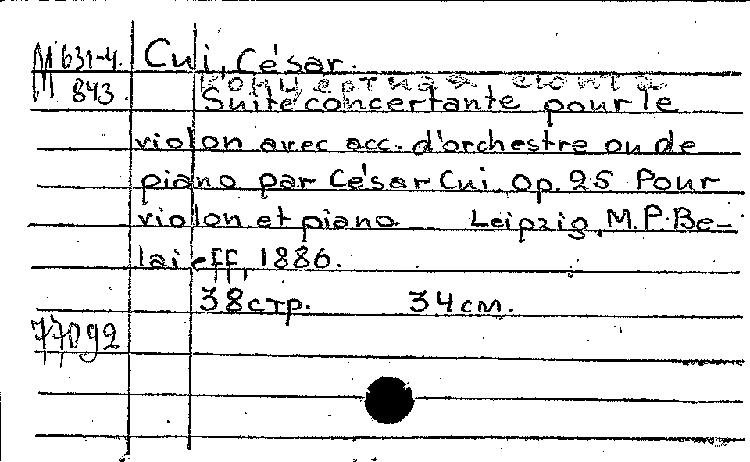 М 631-4. Cui, César.
М 843 Концертная сюита
Suite concertante pour le
violon avec acc. d'orchestre ou de
piano par César Cui. Op. 25 Pour
violon et piano. Leipzig, M. P. Be-
laieff, 1886.
38 стр. 34 см.
77092